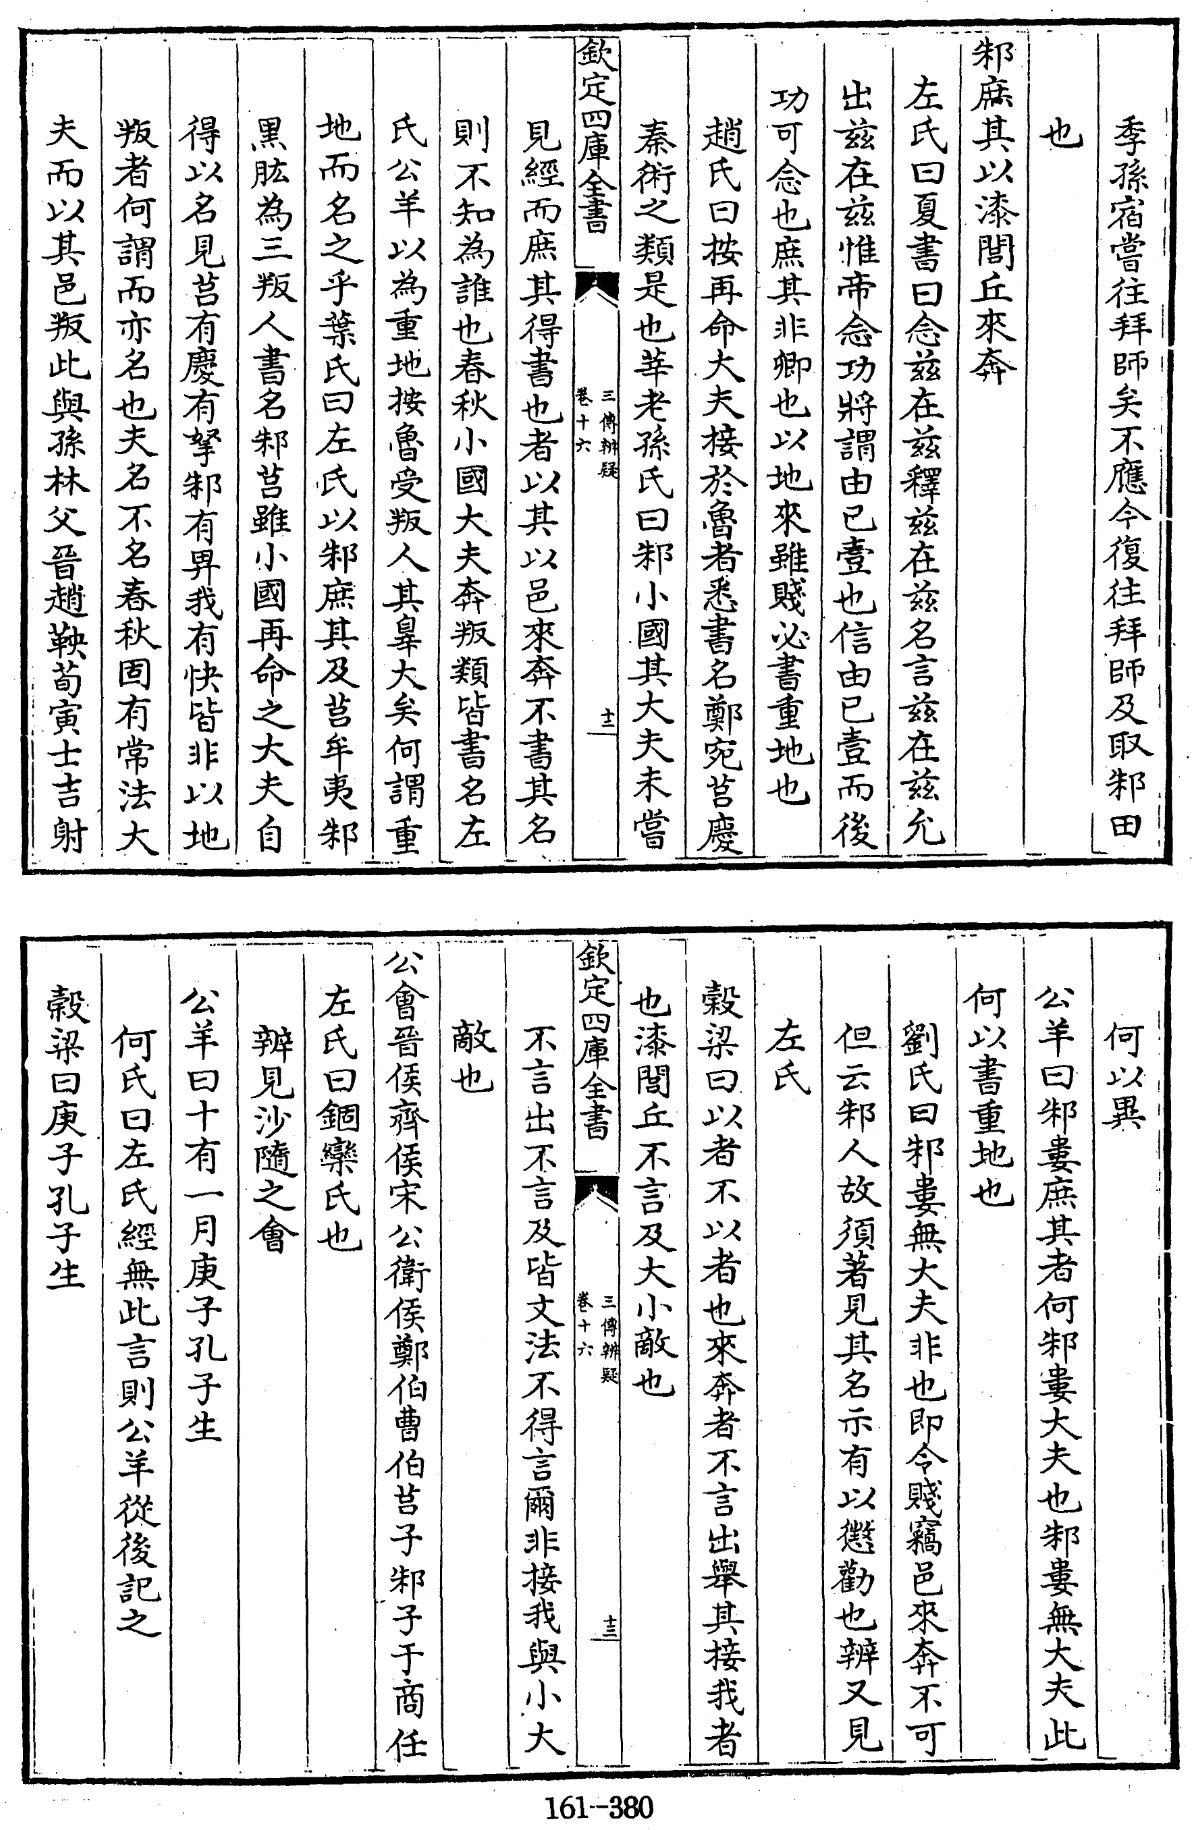 季孫宿嘗往拜師矣不應今復往拜師及取邾田
也
邾庶其以漆閭丘來奔
左氏曰夏書曰念兹在兹釋兹在兹名言兹在兹允
出兹在兹惟帝念功將謂由已壹也信由已壹而後
功可念也庶其非卿也以地來雖賤必書重地也
趙氏曰按再命大夫接於魯者悉書名鄭宛莒慶
秦術之類是也莘老孫氏曰邾小國其大夫未嘗
欽定四庫全書
三傳辨疑
卷十六
十二
見經而庶其得書也者以其以邑來奔不書其名
則不知為誰也春秋小國大夫奔叛類皆書名左
氏公羊以為重地按魯受叛人其辠大矣何謂重
地而名之乎葉氏曰左氏以邾庶其及莒牟夷邾
黑肱為三叛人書名邾莒雖小國再命之大夫自
得以名見莒有慶有挐邾有畀我有快皆非以地
叛者何謂而亦名也夫名不名春秋固有常法大
夫而以其邑叛此與孫林父晉趙鞅荀寅士吉射
何以異
公羊曰邾婁庶其者何邾婁大夫也邾婁無大夫此
何以書重地也
劉氏曰邾婁無大夫非也即令賤竊邑來奔不可
但云邾人故須著見其名示有以懲勸也辨又見
左氏
穀梁曰以者不以者也來奔者不言出舉其接我者
也漆閭丘不言及大小敵也
欽定四庫全書
三傳辨疑
卷十六
十三
不言出不言及皆文法不得言爾非接我與小大
敵也
公會晉侯齊侯宋公衛侯鄭伯曹伯莒子邾子于商任
左氏曰錮欒氏也
辨見沙隨之會
公羊曰十有一月庚子孔子生
何氏曰左氏經無此言則公羊從後記之
穀梁曰庚子孔子生
161--380